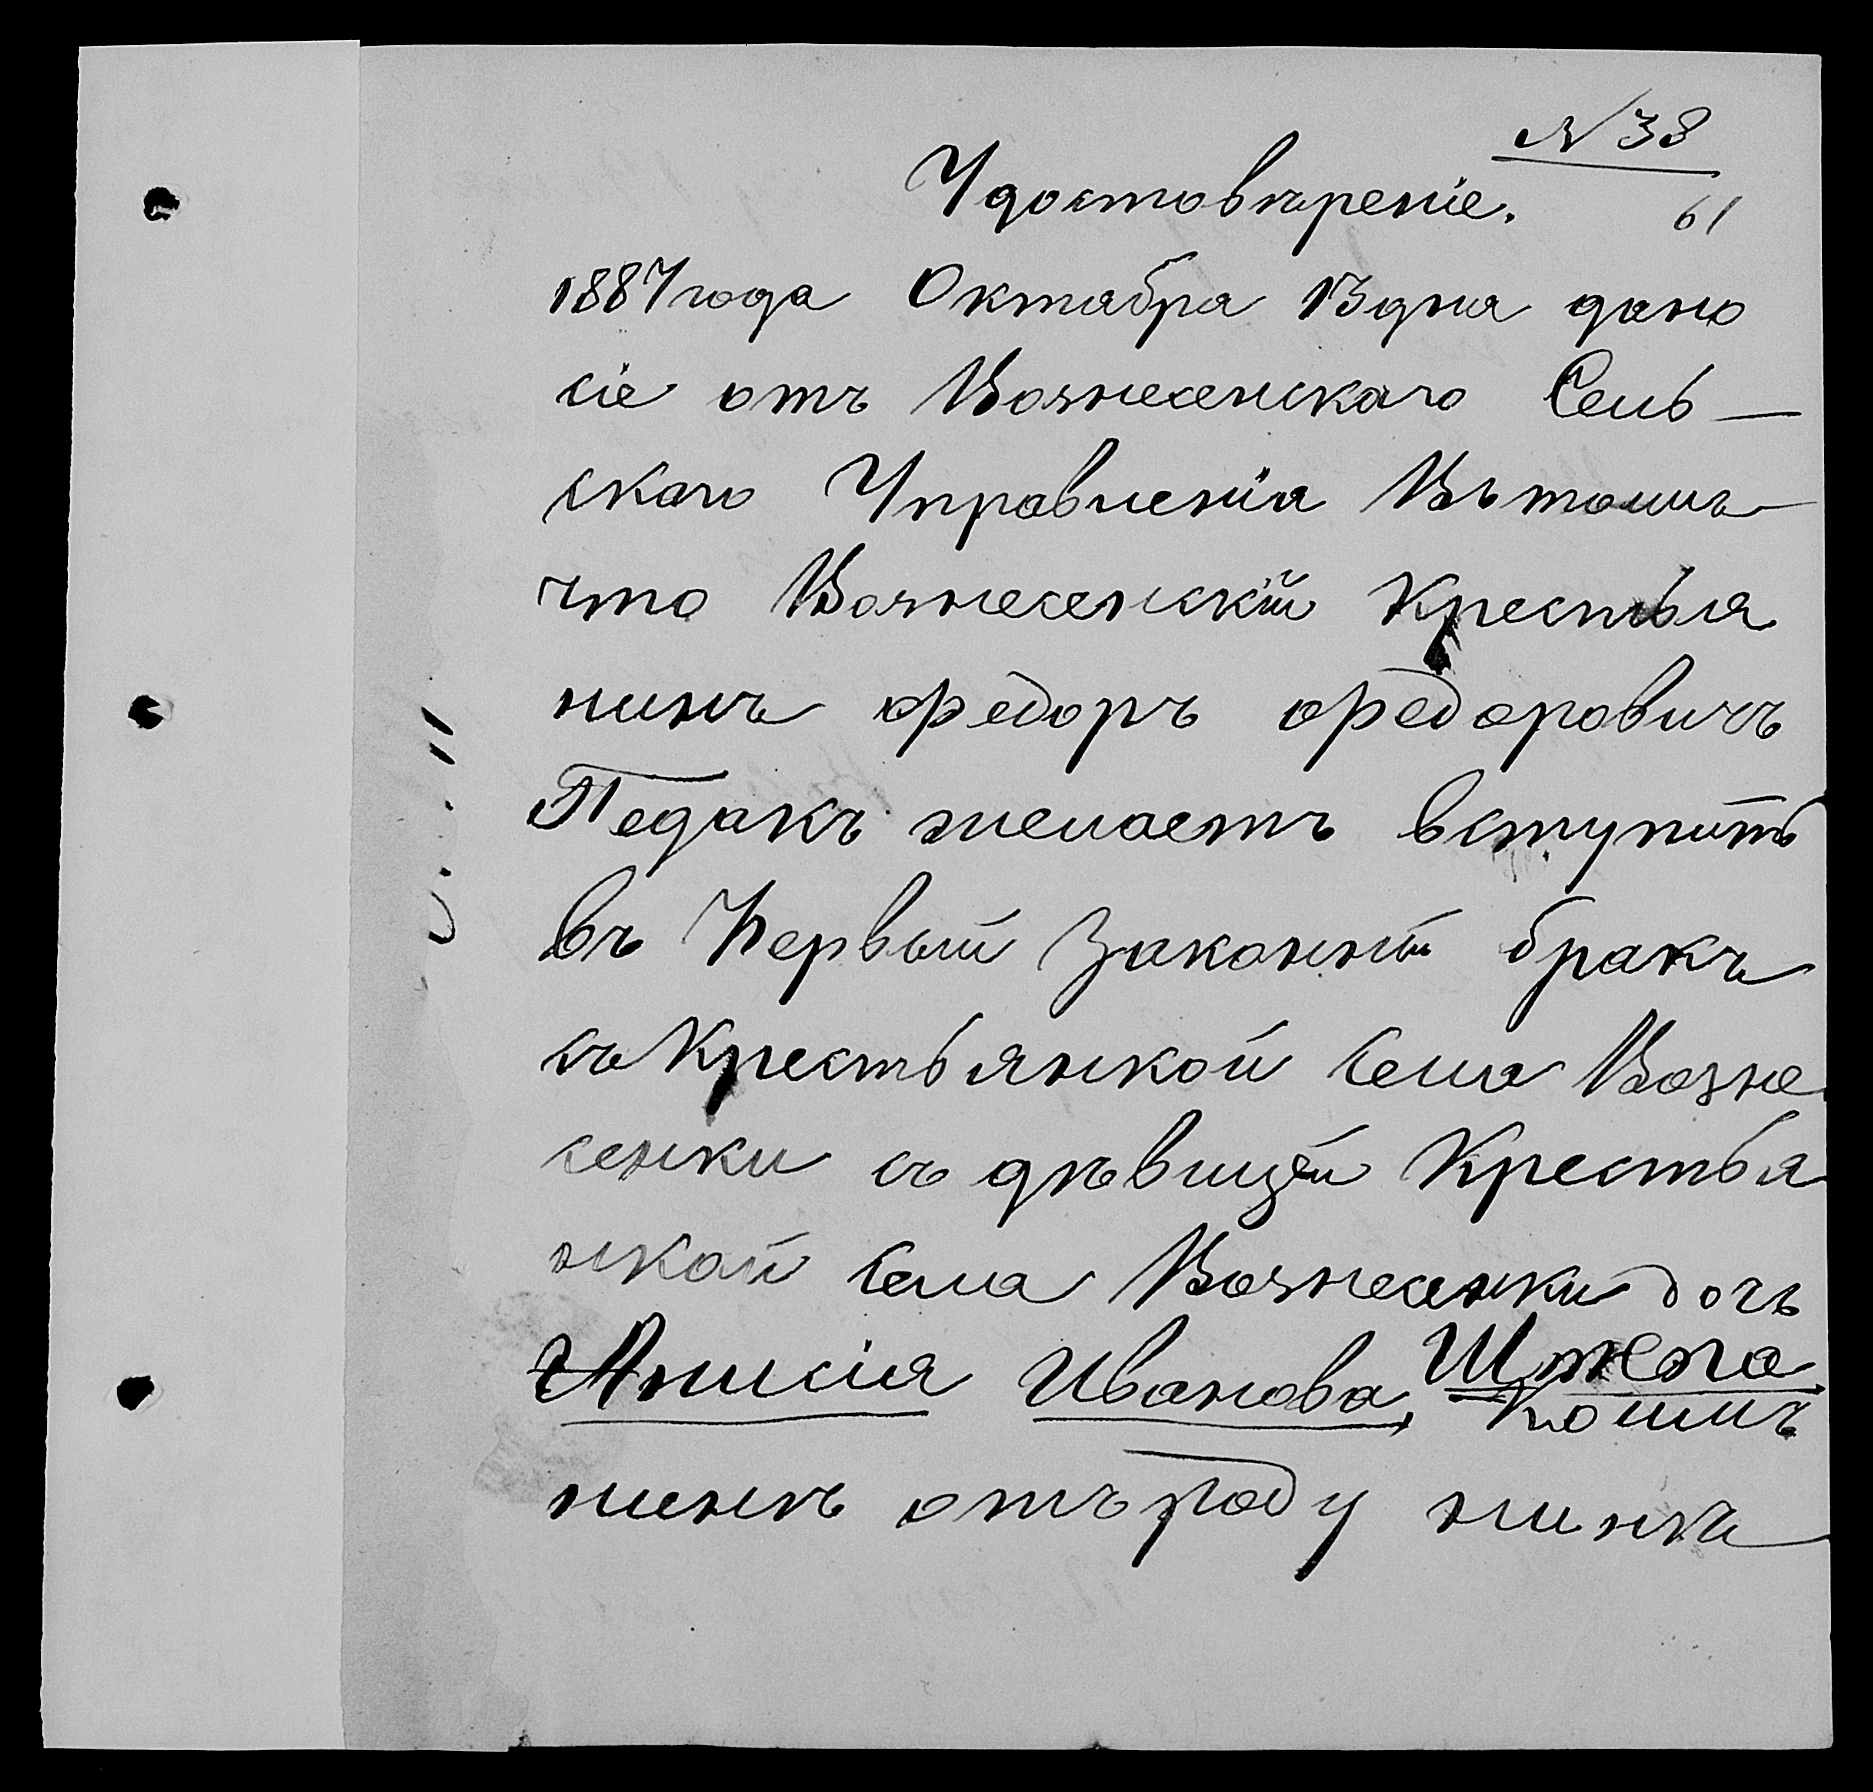 № 38
Удостовѣреніе.
61
1887 года Октября 13 дня дано
сіе отъ Вознесенскаго Сель-
скаго Управленія Въ томъ
что Вознесенскій Крестья
нинъ Федоръ Федоровичъ
Педакъ желаетъ вступить
въ Первый Законый бракъ
съ Крестьянкой села Возне
сенки съ дѣвицей Крестья
нкой села Вознесенки дочь
Анисія Иванова
женихъ отъ роду